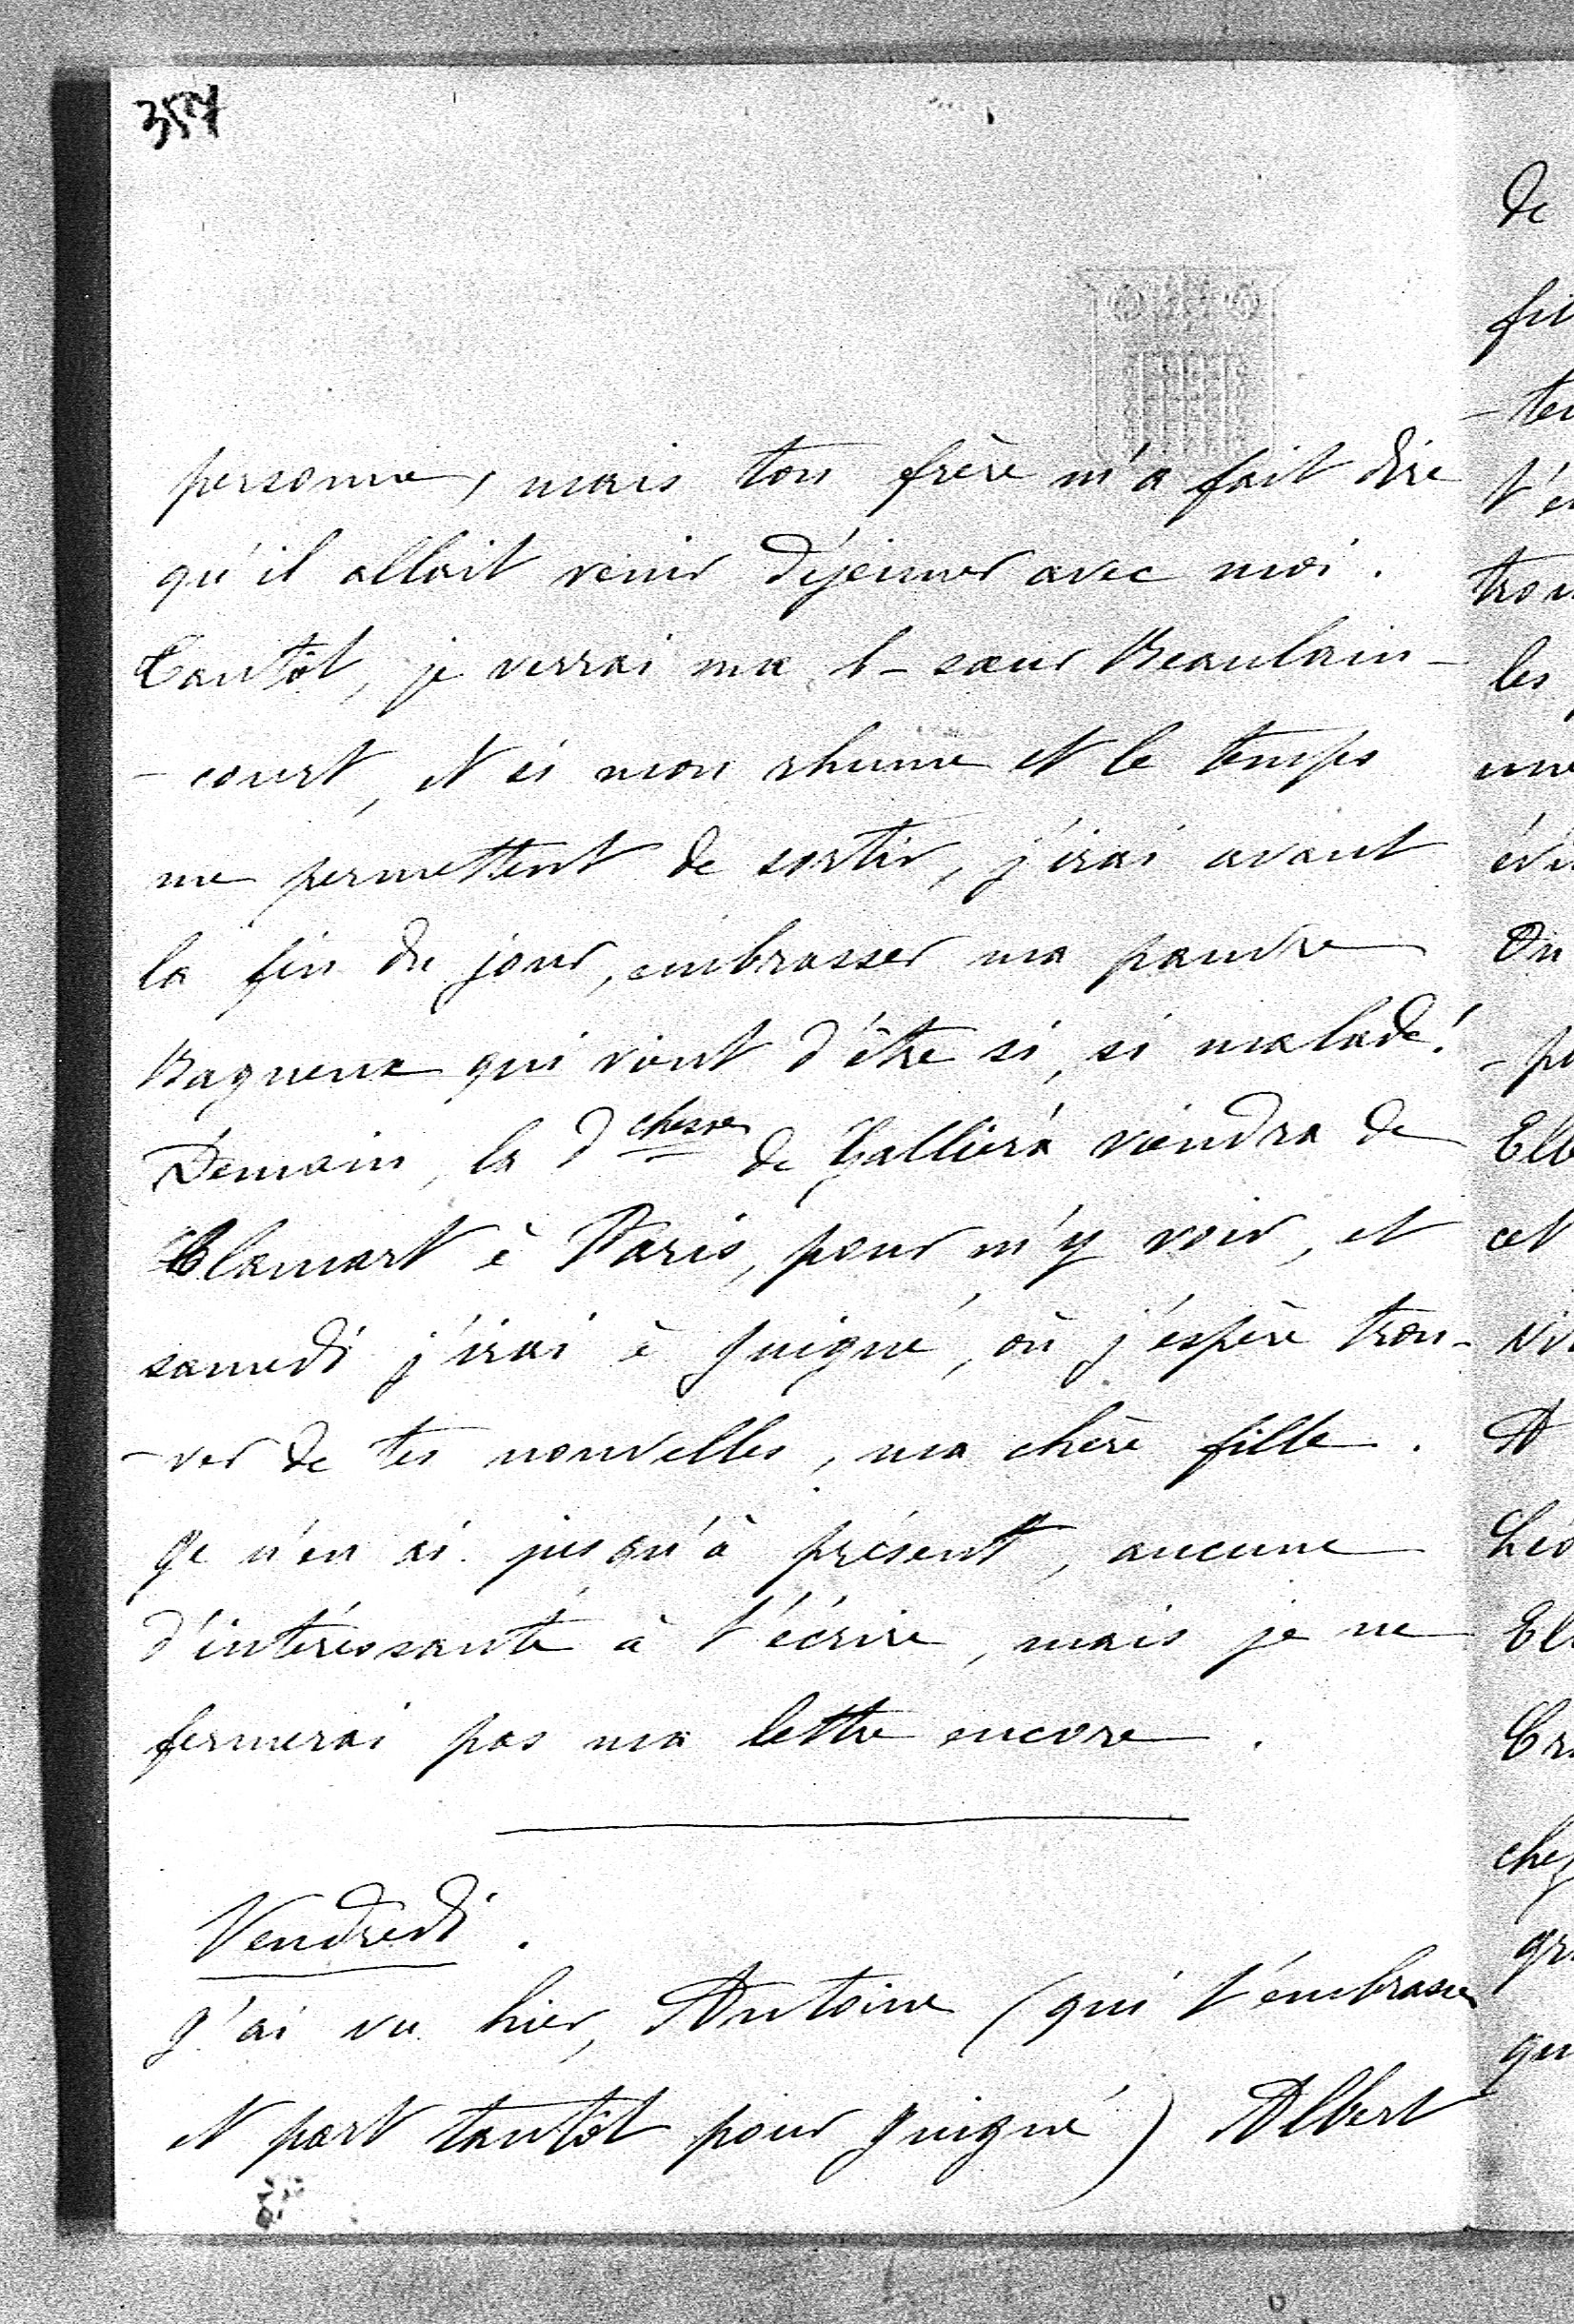 357
personne, mais ton frère m'a fait dire
qu'il allait venir déjeuner avec moi.
Tantôt, je verrai ma b-sœur Beaulain-
-court, et si mon rhume et le temps
me permettent de sortir, j'irai avant
la fin du jour, embrasser ma pauvre
Bagneux qui vient d'être si, si malade!
Demain, la Dchesse de Galliera viendra de
Clamart à Paris, pour m'y voir, et
samedi j'irai à Juigné, où j'espère trou-
-ver de tes nouvelles, ma chère fille.
Je n'en ai jusqu'à présent, aucune
d'intéressante à t'écrire, mais je ne
fermerai pas ma lettre encore.
Vendredi.
J'ai vu hier, Antoine (qui t'embrasse
et part tantôt pour Juigné) Albert
de
les
On
et
A